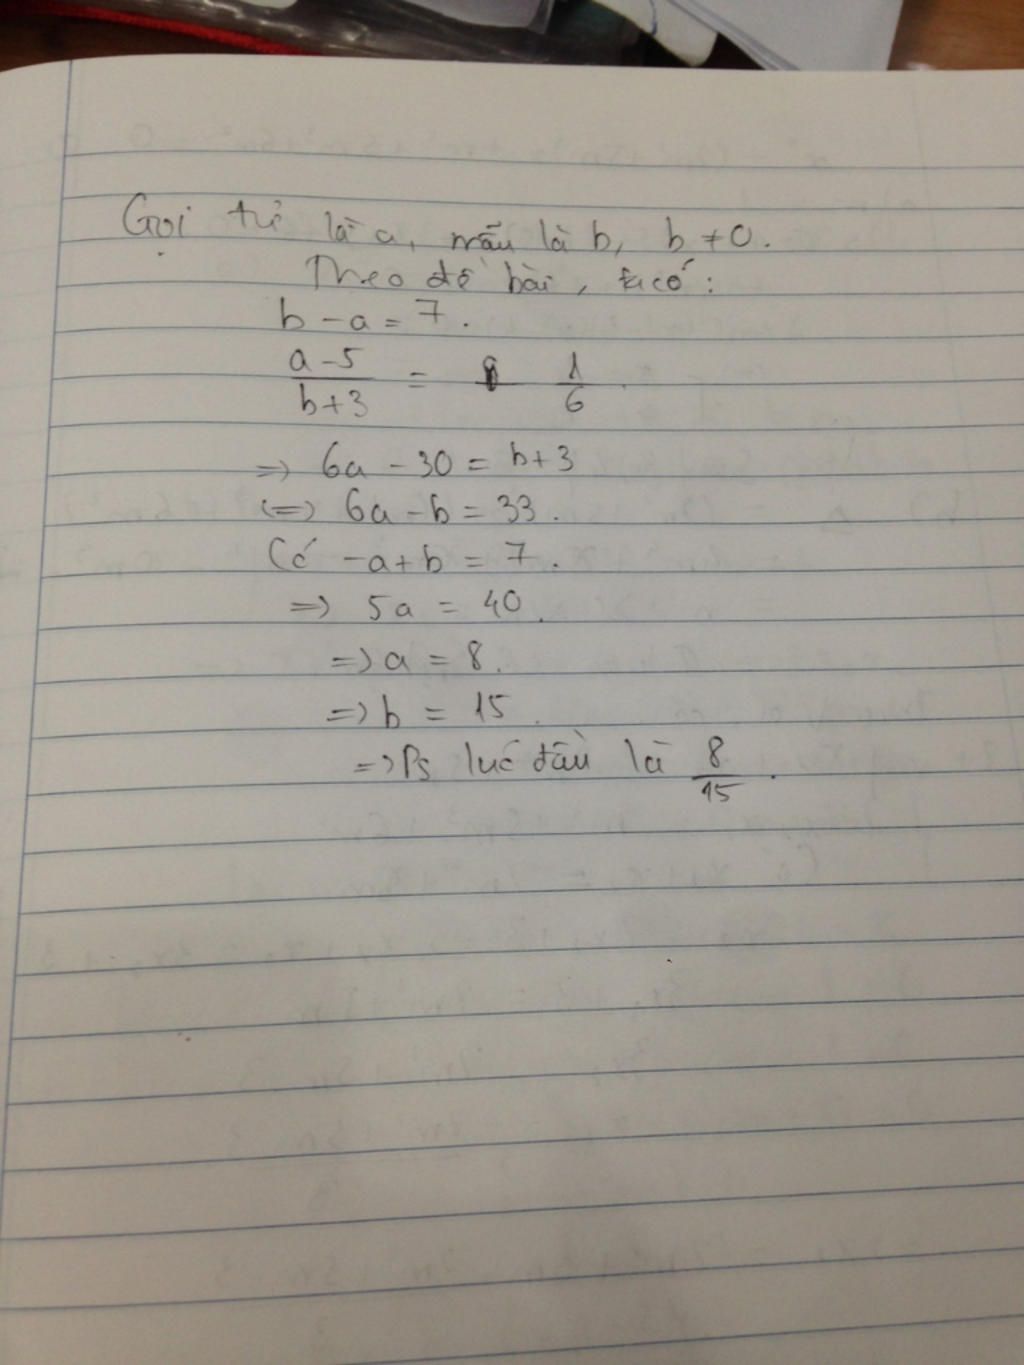 Gọi tử là a, mẫu là b, b ≠ 0.
Theo đề bài, ta có:
b - a = 7.
a - 5 / b + 3 = 1 / 6.
=> 6a - 30 = b + 3
<=> 6a - b = 33.
Có -a + b = 7.
=> 5a = 40.
=> a = 8.
=> b = 15.
=> Ps lúc đầu là 8 / 15.